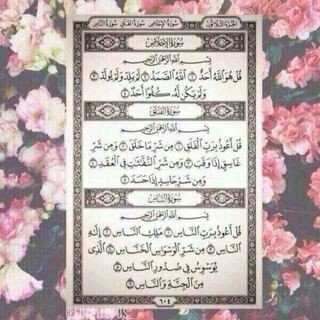 سورة الإخلاص سورة الفلق سورة الناس
الجزء الثلاثون
سورة الإخلاص
بسم الله الرحمن الرحيم
قُلْ هُوَ اللَّهُ أَحَدٌ ١ اللَّهُ الصَّمَدُ ٢ لَمْ يَلِدْ وَلَمْ يُولَدْ ٣
وَلَمْ يَكُن لَّهُ كُفُوًا أَحَدٌ ٤
سورة الفلق
بسم الله الرحمن الرحيم
قُلْ أَعُوذُ بِرَبِّ الْفَلَقِ ١ مِن شَرِّ مَا خَلَقَ ٢ وَمِن شَرِّ
غَاسِقٍ إِذَا وَقَبَ ٣ وَمِن شَرِّ النَّفَّاثَاتِ فِي الْعُقَدِ ٤
وَمِن شَرِّ حَاسِدٍ إِذَا حَسَدَ ٥
سورة الناس
بسم الله الرحمن الرحيم
قُلْ أَعُوذُ بِرَبِّ النَّاسِ ١ مَلِكِ النَّاسِ ٢ إِلَٰهِ
النَّاسِ ٣ مِن شَرِّ الْوَسْوَاسِ الْخَنَّاسِ ٤ الَّذِي
يُوَسْوِسُ فِي صُدُورِ النَّاسِ ٥
مِنَ الْجِنَّةِ وَالنَّاسِ ٦
٦٠٤